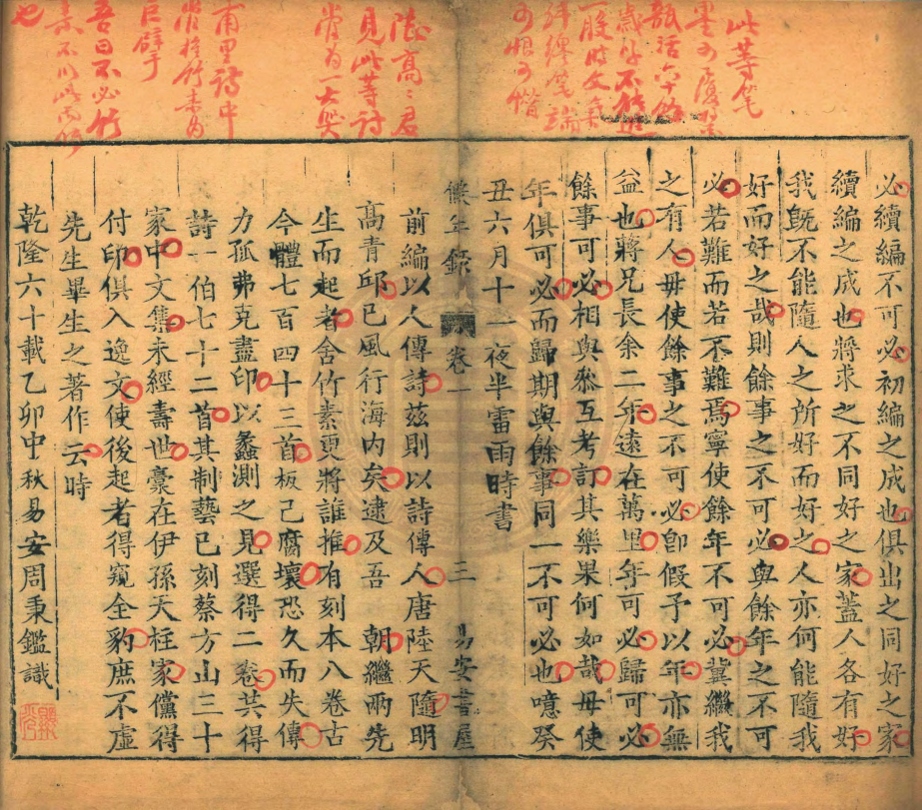 此等筆
可恨可憎
陸高二君
見此等詩
當爲一大哭
甫里詩中
當推竹素爲
巨擘乎
吾曰不必竹
也
必續編不可必初編之成也俱出之同好之家
續編之成也將求之不同好之家蓋人各有好
我旣不能隨人之所好而好之人亦何能隨我
好而好之哉則餘事之不可必與餘年之不可
必若難而若不難焉寧使餘年不可必冀繼我
之有人毋使餘事之不可必卽假予以年亦無
益也蔣兄長余二年遠在萬里年可必歸可必
餘事可必相與叅互考訂其樂果何如哉毋使
年俱可必而歸期與餘事同一不可必也噫癸
丑六月十一夜半雷雨時書
卷一 三 易安書屋
前編以人傳詩茲則以詩傳人唐陸天隨明
高青邱已風行海內矣逮及吾 朝繼兩先
生而起者舍竹素更將誰推有刻本八卷古
今體七百四十三首板已腐壞恐久而失傳
力孤弗克盡印以蠡測之見選得二卷共得
詩一伯七十二首其制藝已刻蔡方山三十
家中文集未經壽世藁在伊孫天柱家儻得
付印俱入逸文使後起者得窺全豹庶不虛
先生畢生之著作云時
乾隆六十載乙卯中秋易安周秉鑑識